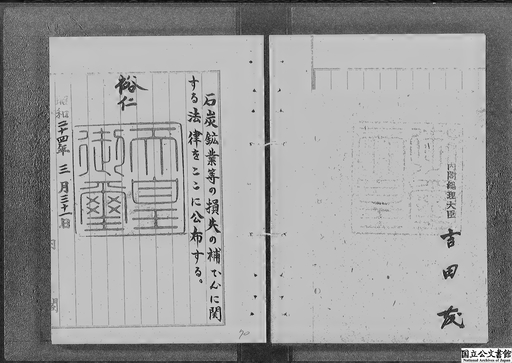 石炭鉱業等の損失の補てんに関
する法律をここに公布する。
裕仁
天皇
御璽
昭和二十四年三月三十一日
内閣総理大臣
吉田茂
70
国立公文書館
National Archives of Japan